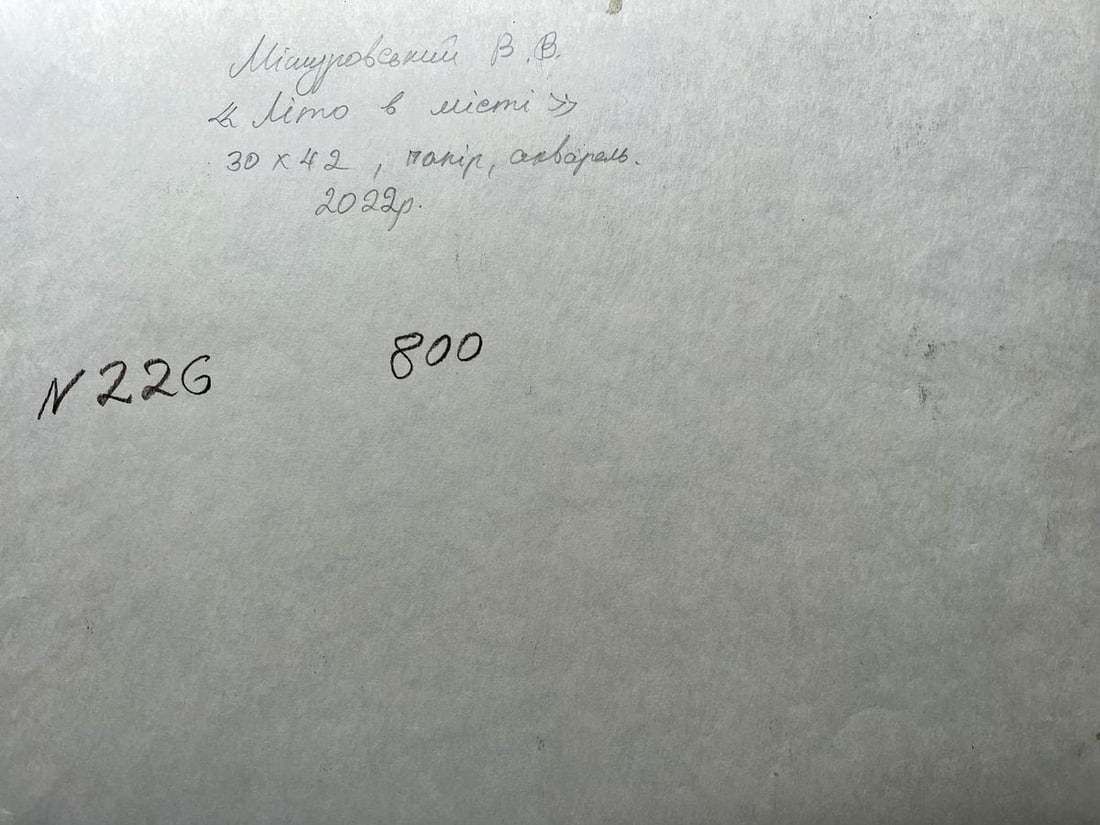 Мішуровський В.В.
« Літо в місті »
30 х 42 , папір, акварель.
2022р.
N 226 800